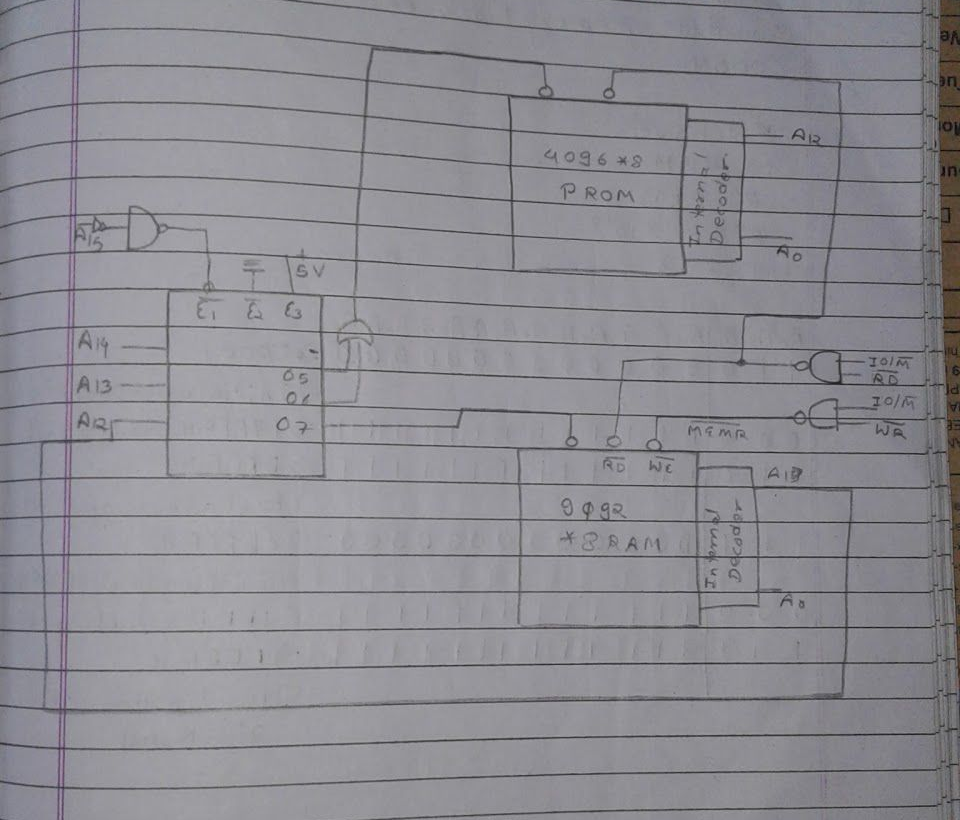 A12
4096*8
PROM
Internal
Decoder
A0
A15
5V
E̅1̅ E̅2̅ E3
A14
A13
A12
O5
O6
O7
IO/M̅
R̅D̅
IO/M̅
W̅R̅
M̅E̅M̅R̅
R̅D̅ W̅E̅
9092
*8 RAM
Internal
Decoder
A0